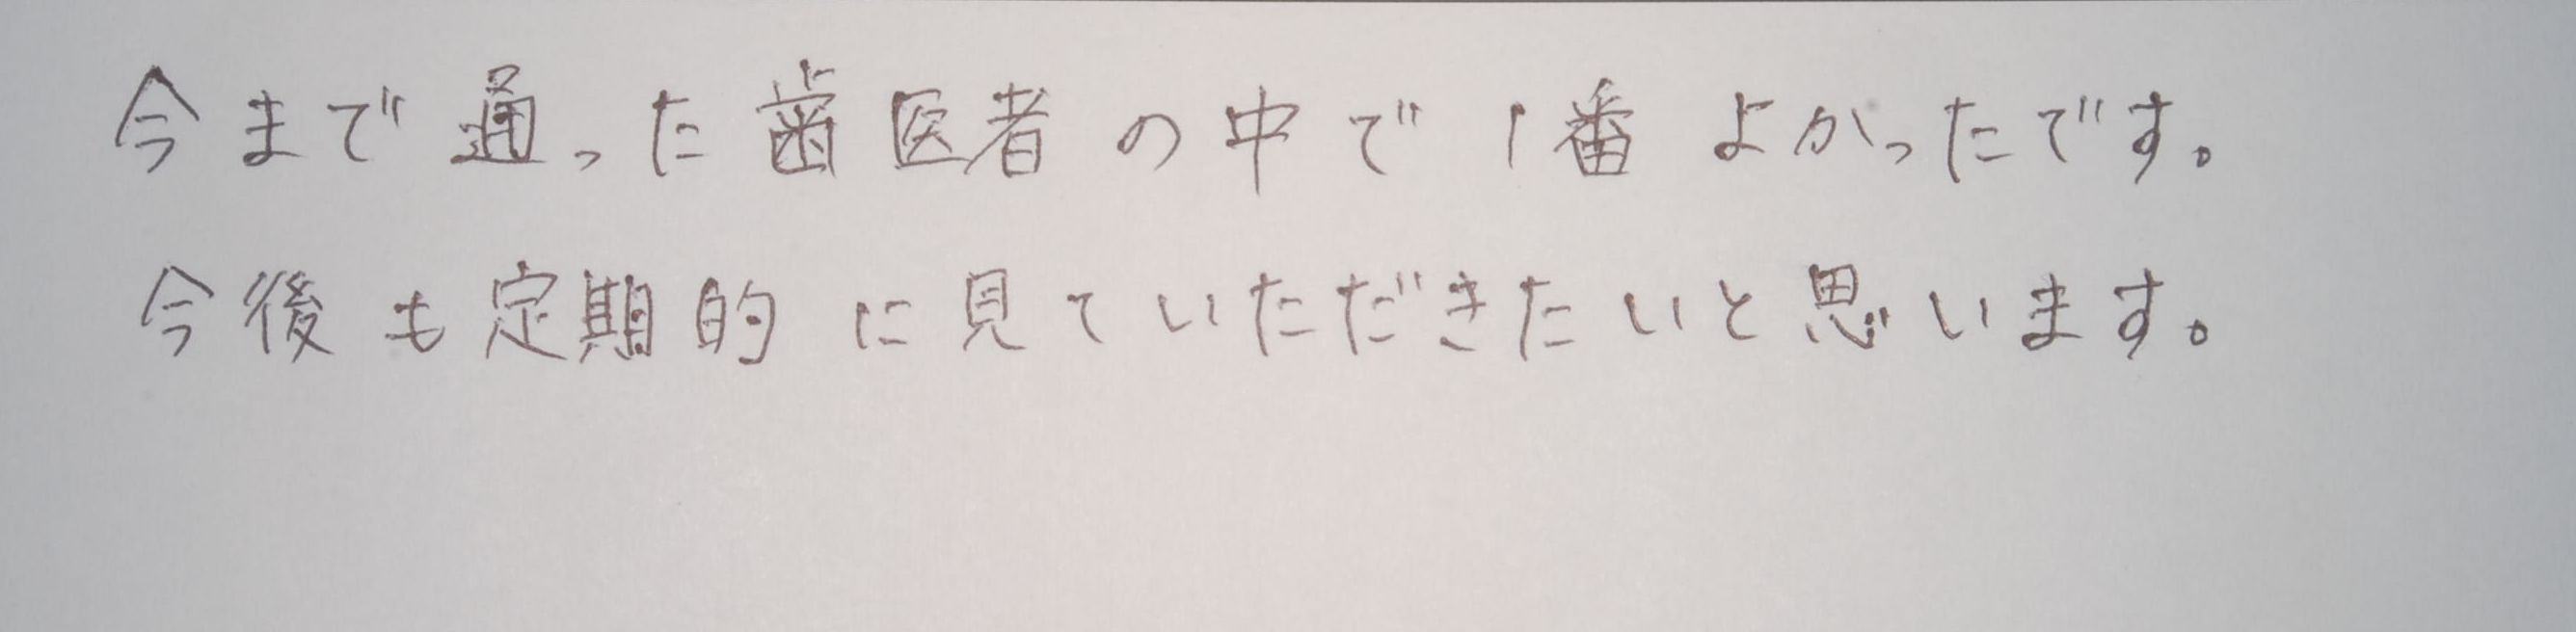 今まで通った歯医者の中で1番よかったです。
今後も定期的に見ていただきたいと思います。